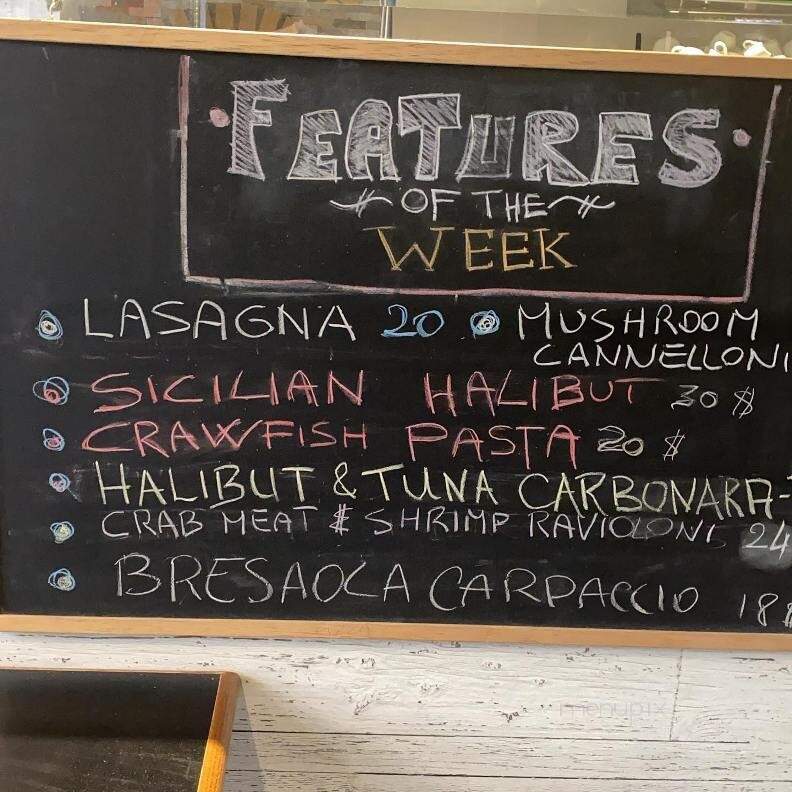 FEATURES
OF THE
WEEK
LASAGNA 20
MUSHROOM
CANNELLONI
SICILIAN HALIBUT 30 $
CRAWFISH PASTA 20 $
HALIBUT & TUNA CARBONARA-
CRAB MEAT & SHRIMP RAVIOLONI 24
BRESAOLA CARPACCIO 18$
menupix